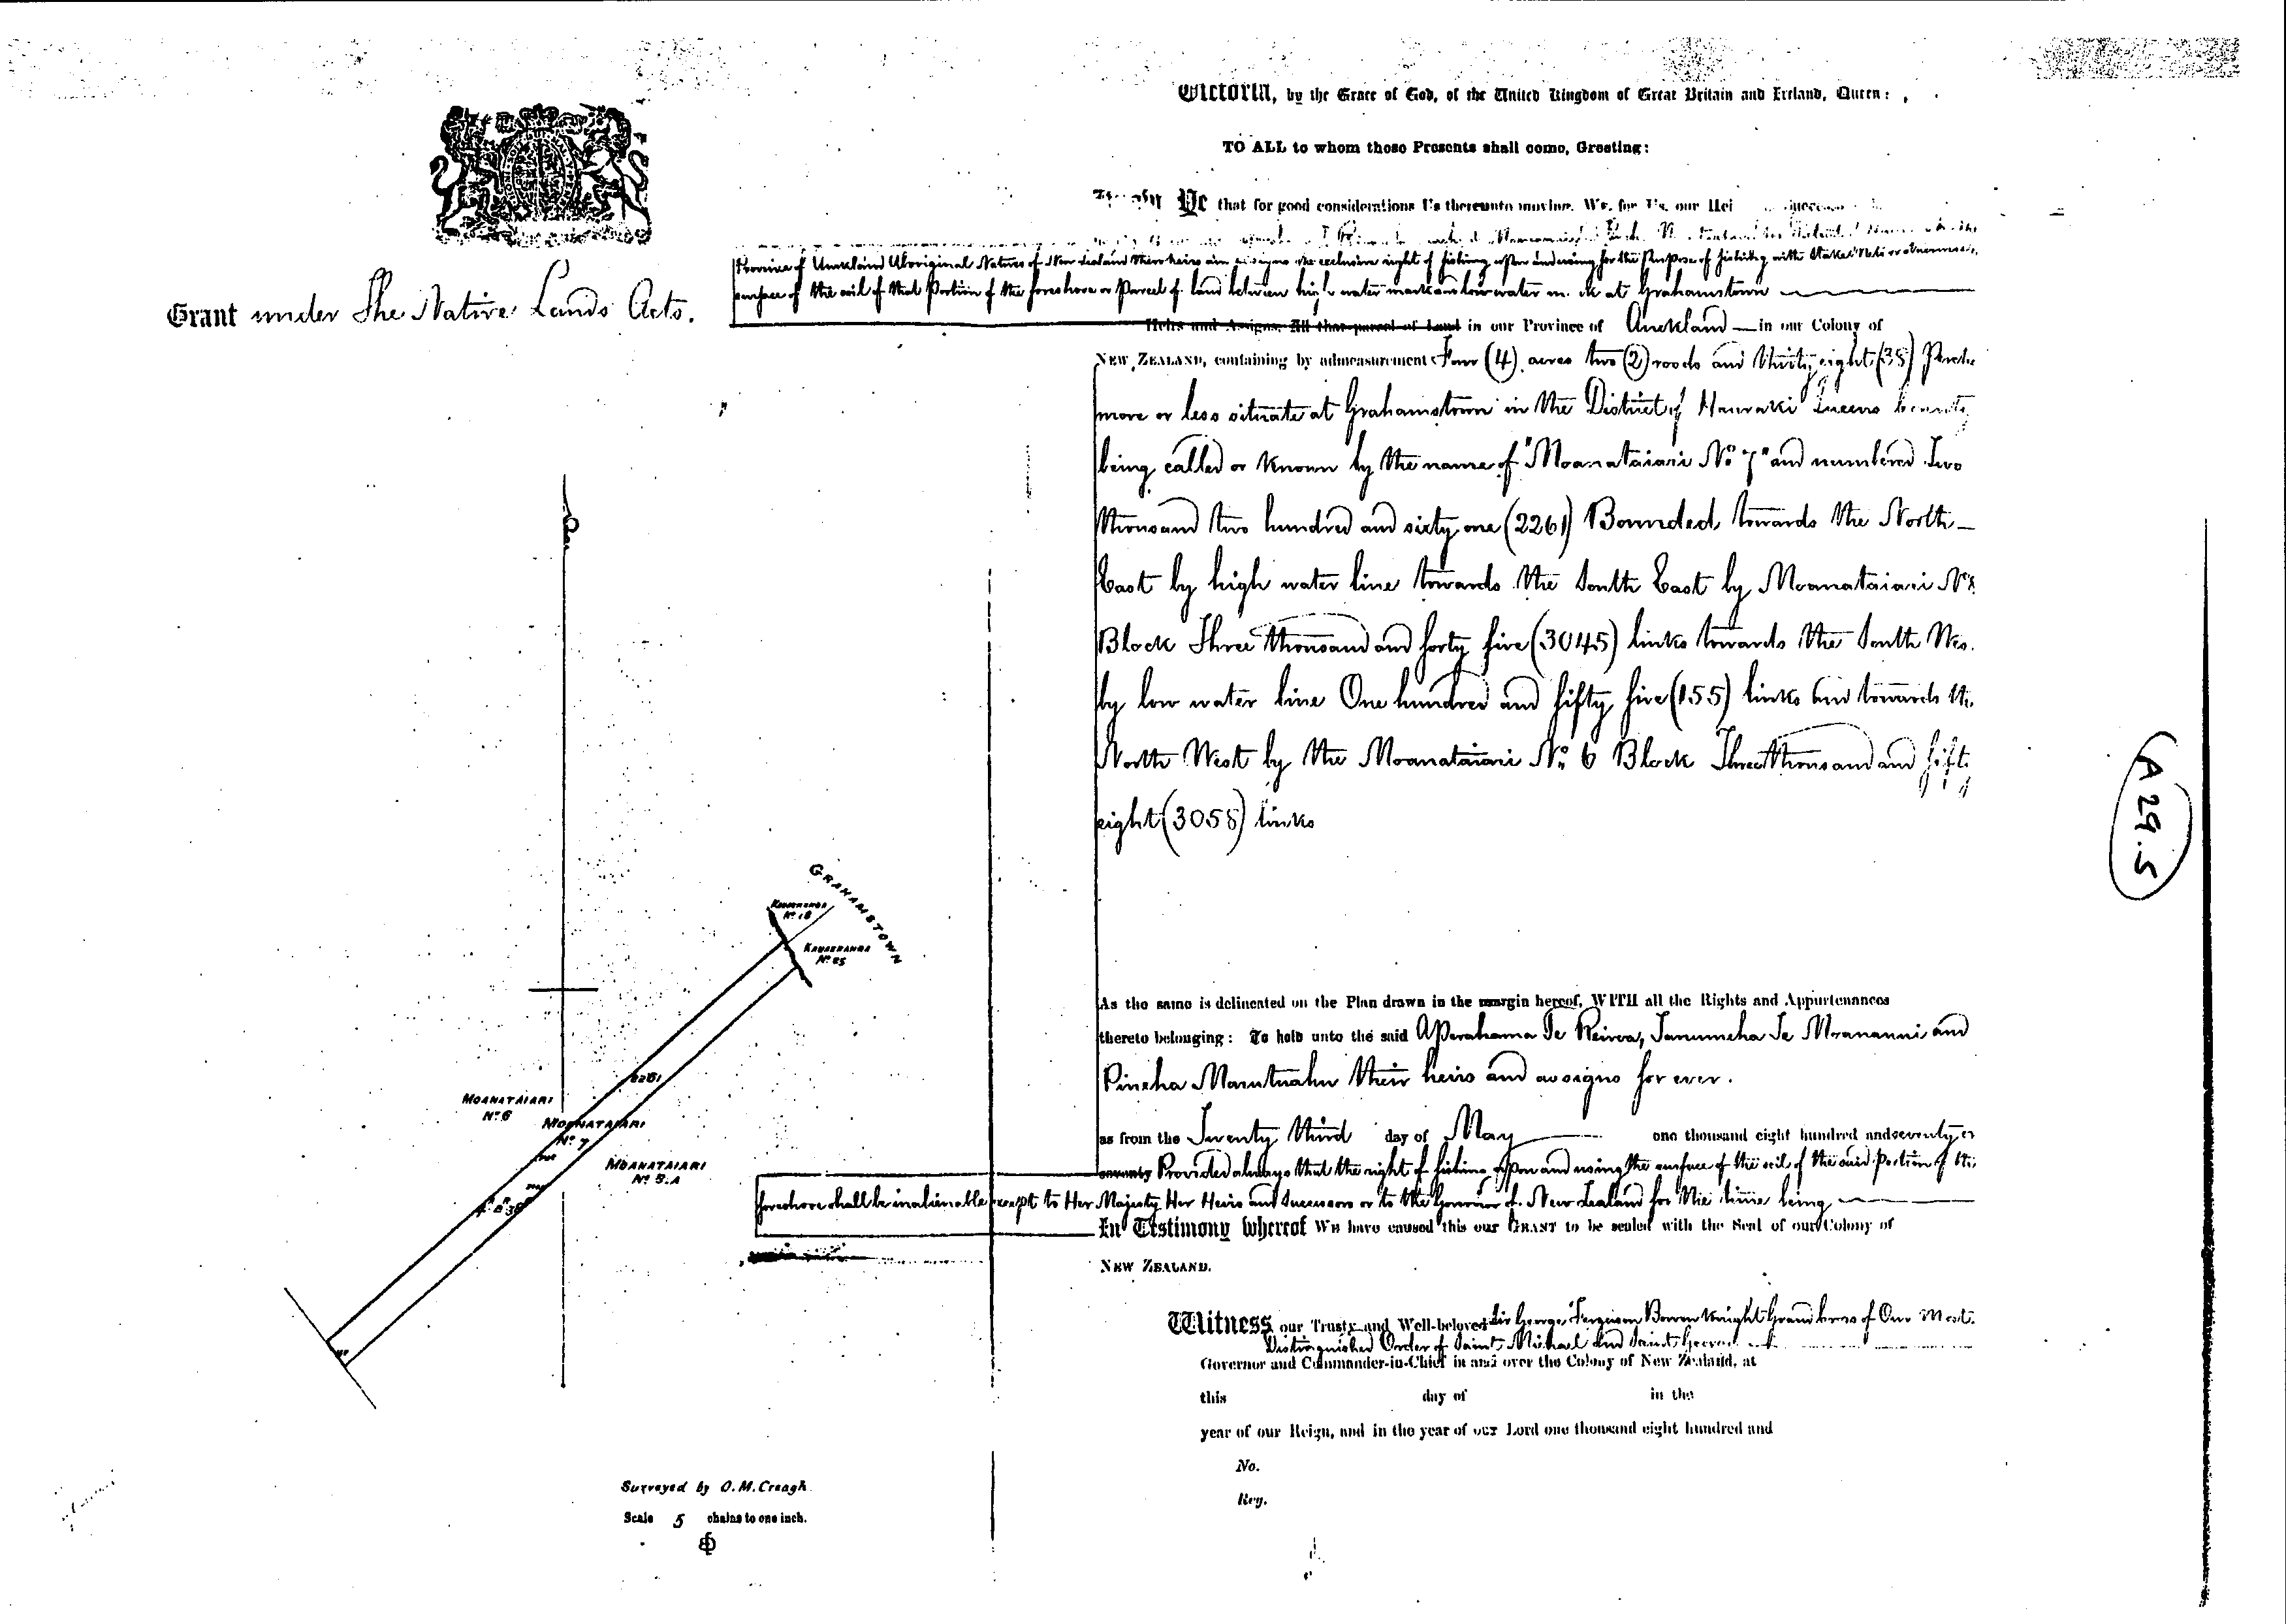 Victoria, by the Grace of God, of the United Kingdom of Great Britain and Ireland, Queen:
TO ALL to whom these Presents shall come, Greeting:
Ye that for good considerations Us thereunto moving, We, for Us, our Hei
Province of Auckland Aboriginal Natives of New Zealand their heirs and assigns the exclusive right of fishing upon and using for the Purpose of fishing with Stakes Nets or otherwise
surface of the soil of that Portion of the foreshore or Parcel of land between high water mark and low water mark at Grahamstown
Grant under The Native Lands Acts.
Heirs and Assigns, All that parcel of Land in our Province of Auckland in our Colony of
NEW ZEALAND, containing by admeasurement Four (4) acres two (2) roods and thirty eight (38) Perche
more or less situate at Grahamstown in the District of Hauraki Queens County
being called or known by the name of "Moanataiari No 7" and numbered Two
thousand two hundred and sixty one (2261) Bounded towards the North-
East by high water line towards the South East by Moanataiari No 8
Block Three thousand and forty five (3045) links towards the South Wes
by low water line One hundred and fifty five (155) links and towards the
North West by the Moanataiari No. 6 Block Three thousand and fifty
eight (3058) links
A29.5
GRAHAMSTOWN
No. 18
KAUAERANGA
No. 25
As the same is delineated on the Plan drawn in the margin hereof, WITH all the Rights and Appurtenances
thereto belonging: To hold unto the said Aperahama Te Reiroa, Tanumeha Te Moananui and
Pineha Marutuahu their heirs and assigns for ever.
2261
MOANATAIARI
No. 6
MOANATAIARI
No. 7
MOANATAIARI
No. 8.A
as from the Twenty third day of May one thousand eight hundred and seventy
Provided always that the right of fishing upon and using the surface of the soil of the said Portion of the
foreshore shall be inalienable except to Her Majesty Her Heirs and Successors or to the Governor of New Zealand for the time being
In Testimony whereof WE have caused this our GRANT to be sealed with the Seal of our Colony of
NEW ZEALAND.
Witness our Trusty and Well-beloved Sir George Ferguson Bowen Knight Grand Cross of Our Most
Distinguished Order of Saint Michael and Saint George
Governor and Commander-in-Chief in and over the Colony of New Zealand, at
this day of in the
year of our Reign, and in the year of our Lord one thousand eight hundred and
No.
Reg.
Surveyed by O. M. Creagh
Scale 5 chains to one inch.